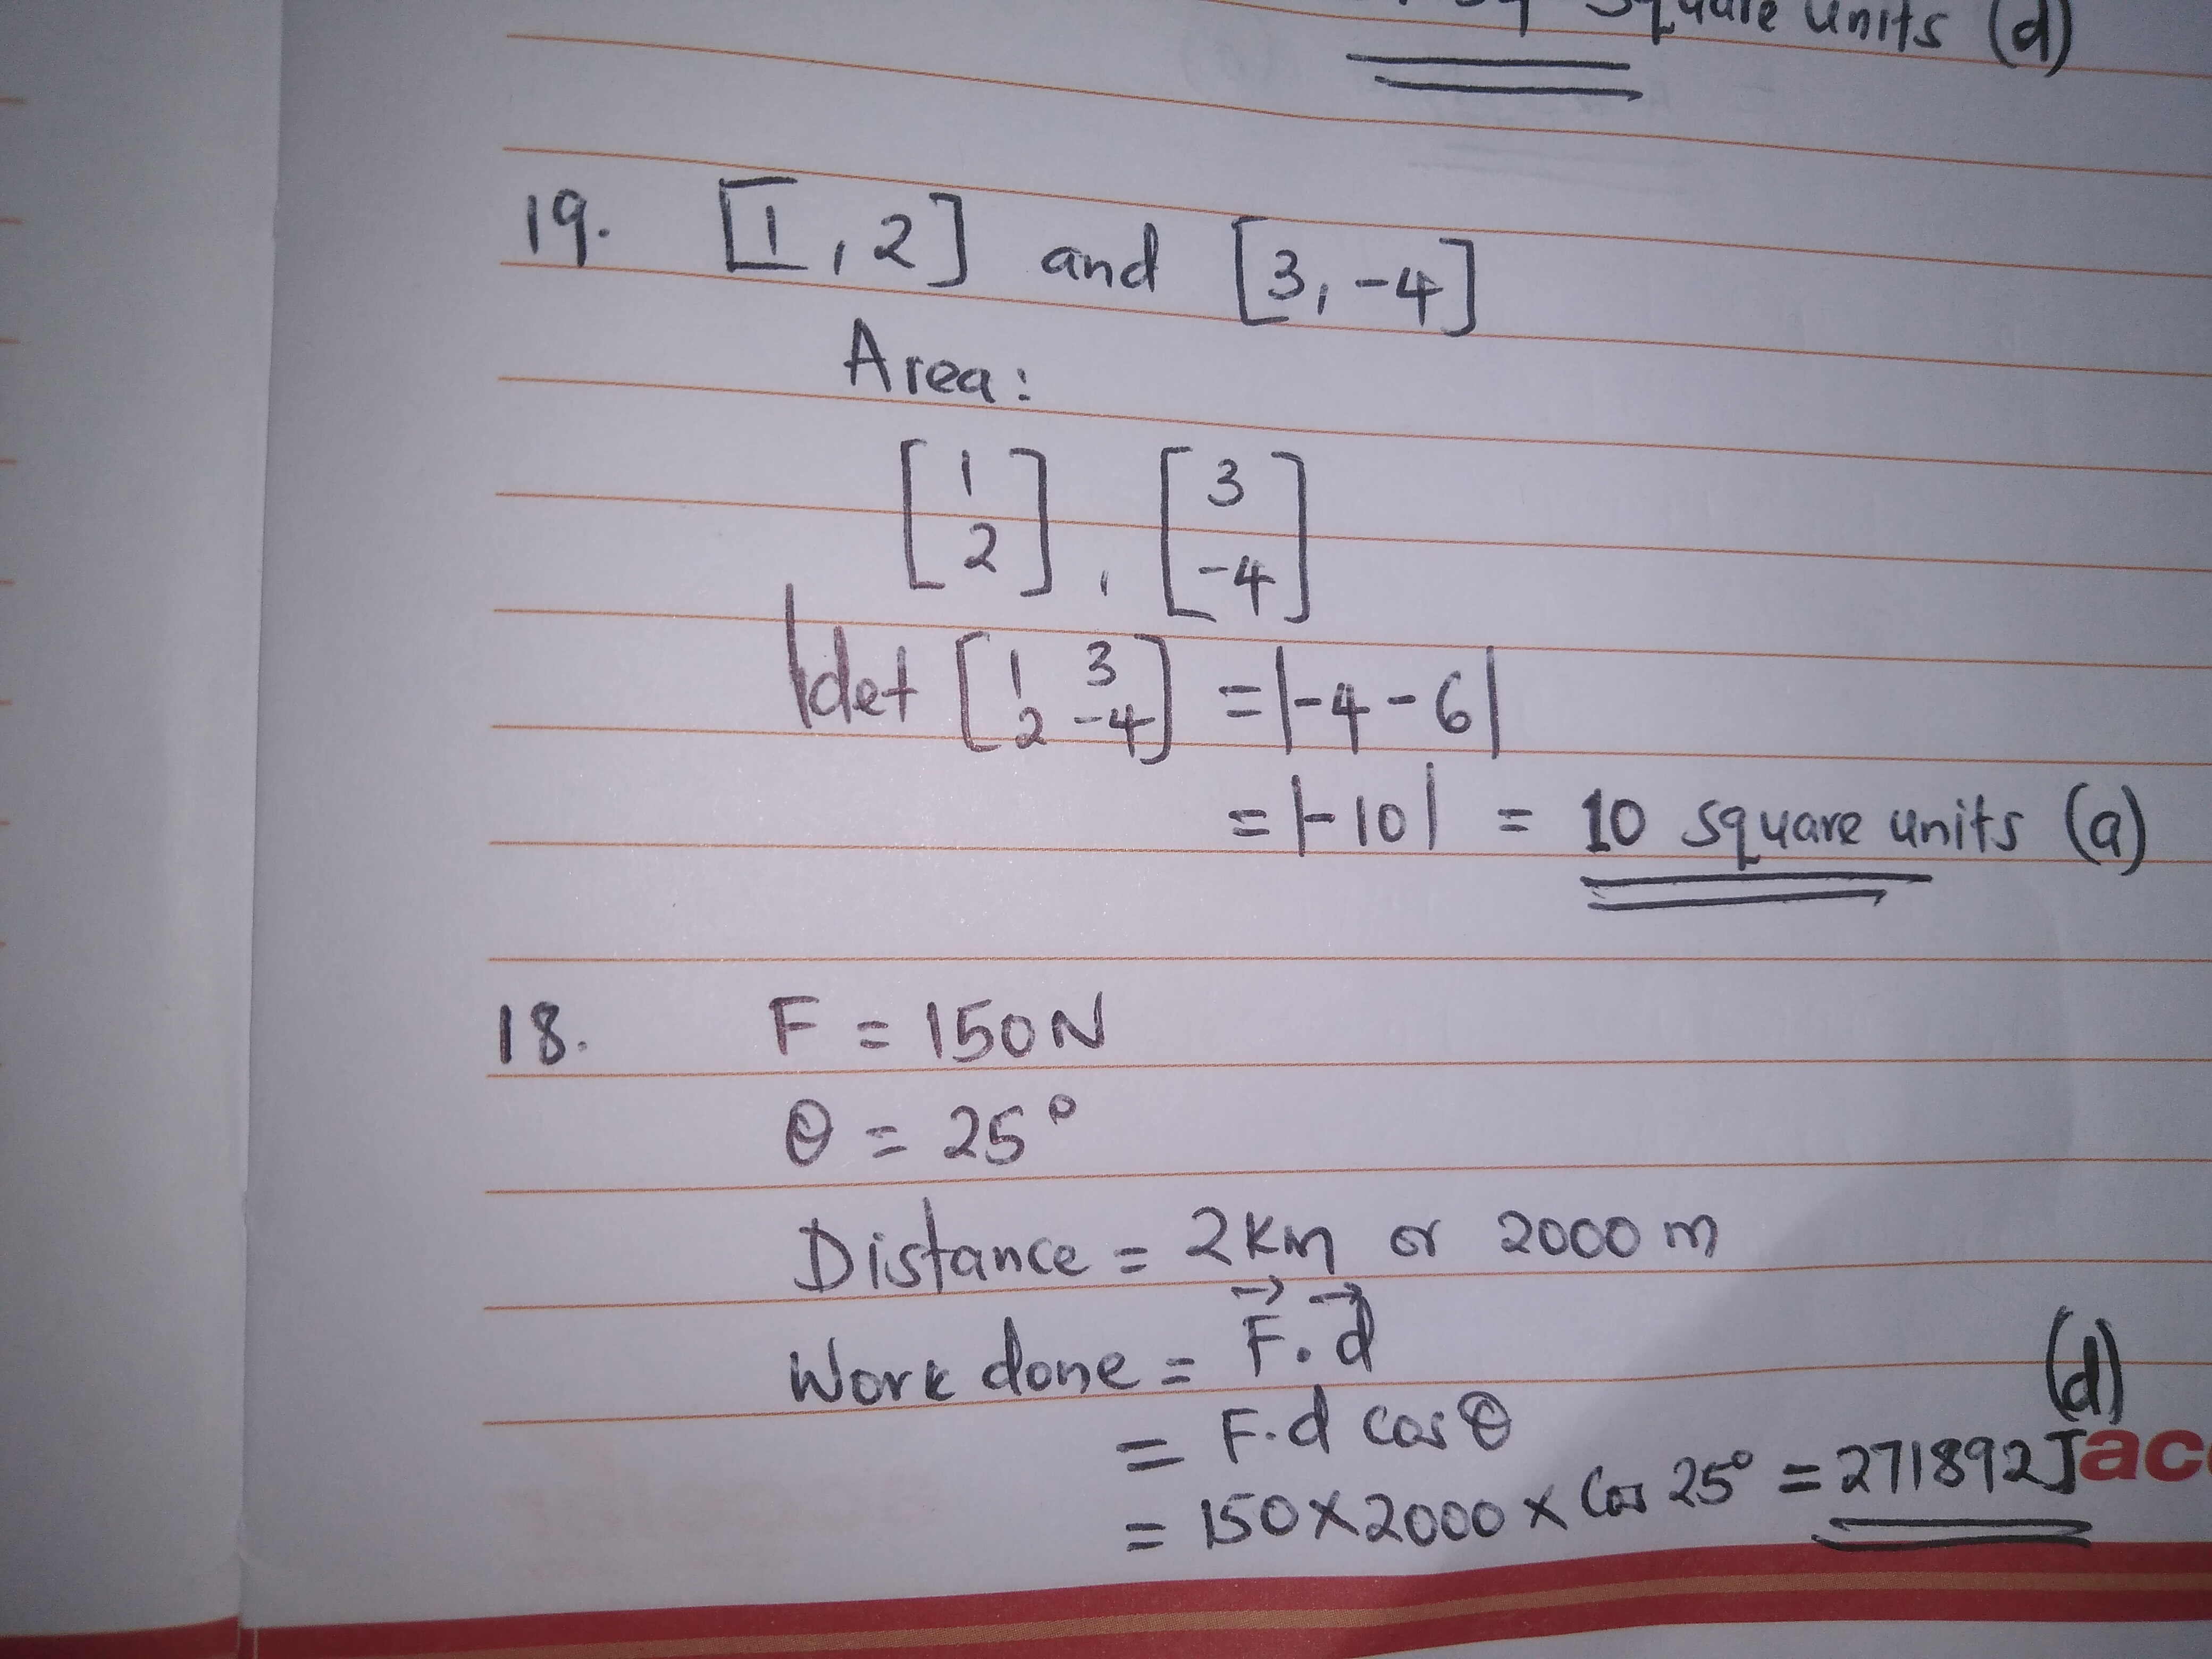 square units (d)
19. [1, 2] and [3, -4]
Area:
[1 2], [3 -4]
|det [1 3 2 -4] = |-4 - 6|
= |-10| = 10 square units (a)
18. F = 150N
θ = 25°
Distance = 2km or 2000 m
Work done = F⃗ . d⃗
= F.d cosθ
(d)
= 150 x 2000 x Cos 25° = 271892J